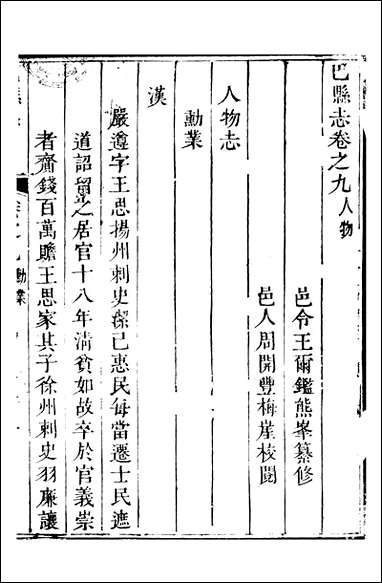 巴縣志卷之九 人物
邑令王爾鑑熊峯纂修
邑人周開豐梅崖校閱
人物志
勳業
漢
嚴遵字王思揚州刺史潔己惠民每當遷士民遮
道詔留之居官十八年清貧如故卒於官義崇
者齎錢百萬贍王思家其子徐州刺史羽廉讓
勳業